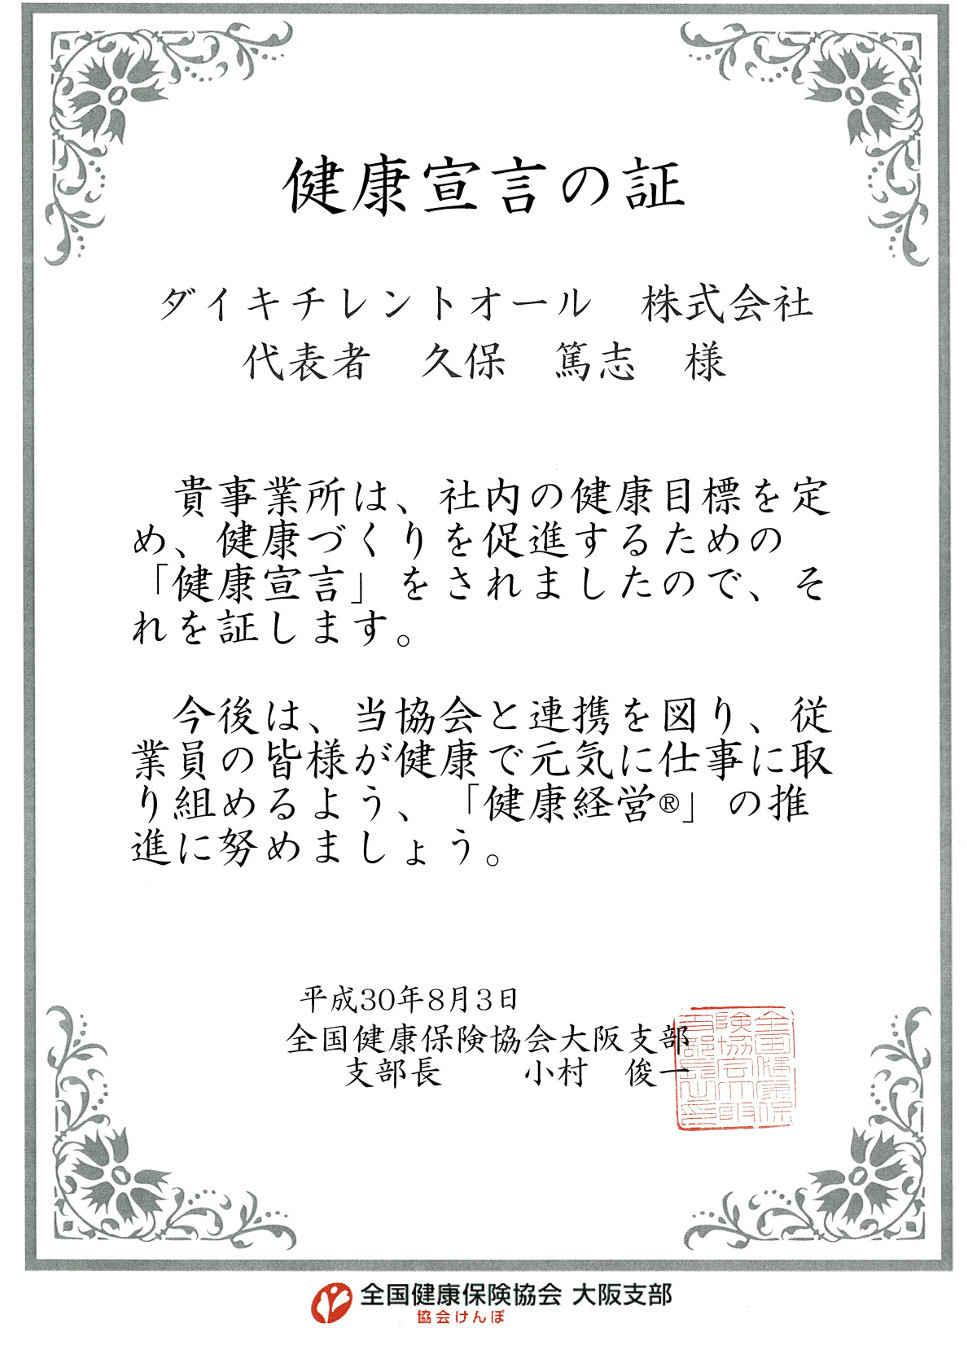 健康宣言の証
ダイキチレントオール　株式会社
代表者　久保　篤志　様
貴事業所は、社内の健康目標を定
め、健康づくりを促進するための
「健康宣言」をされましたので、そ
れを証します。
今後は、当協会と連携を図り、従
業員の皆様が健康で元気に仕事に取
り組めるよう、「健康経営®」の推
進に努めましょう。
平成30年8月3日
全国健康保険協会大阪支部
支部長　小村　俊一
全国健康保険協会 大阪支部
協会けんぽ